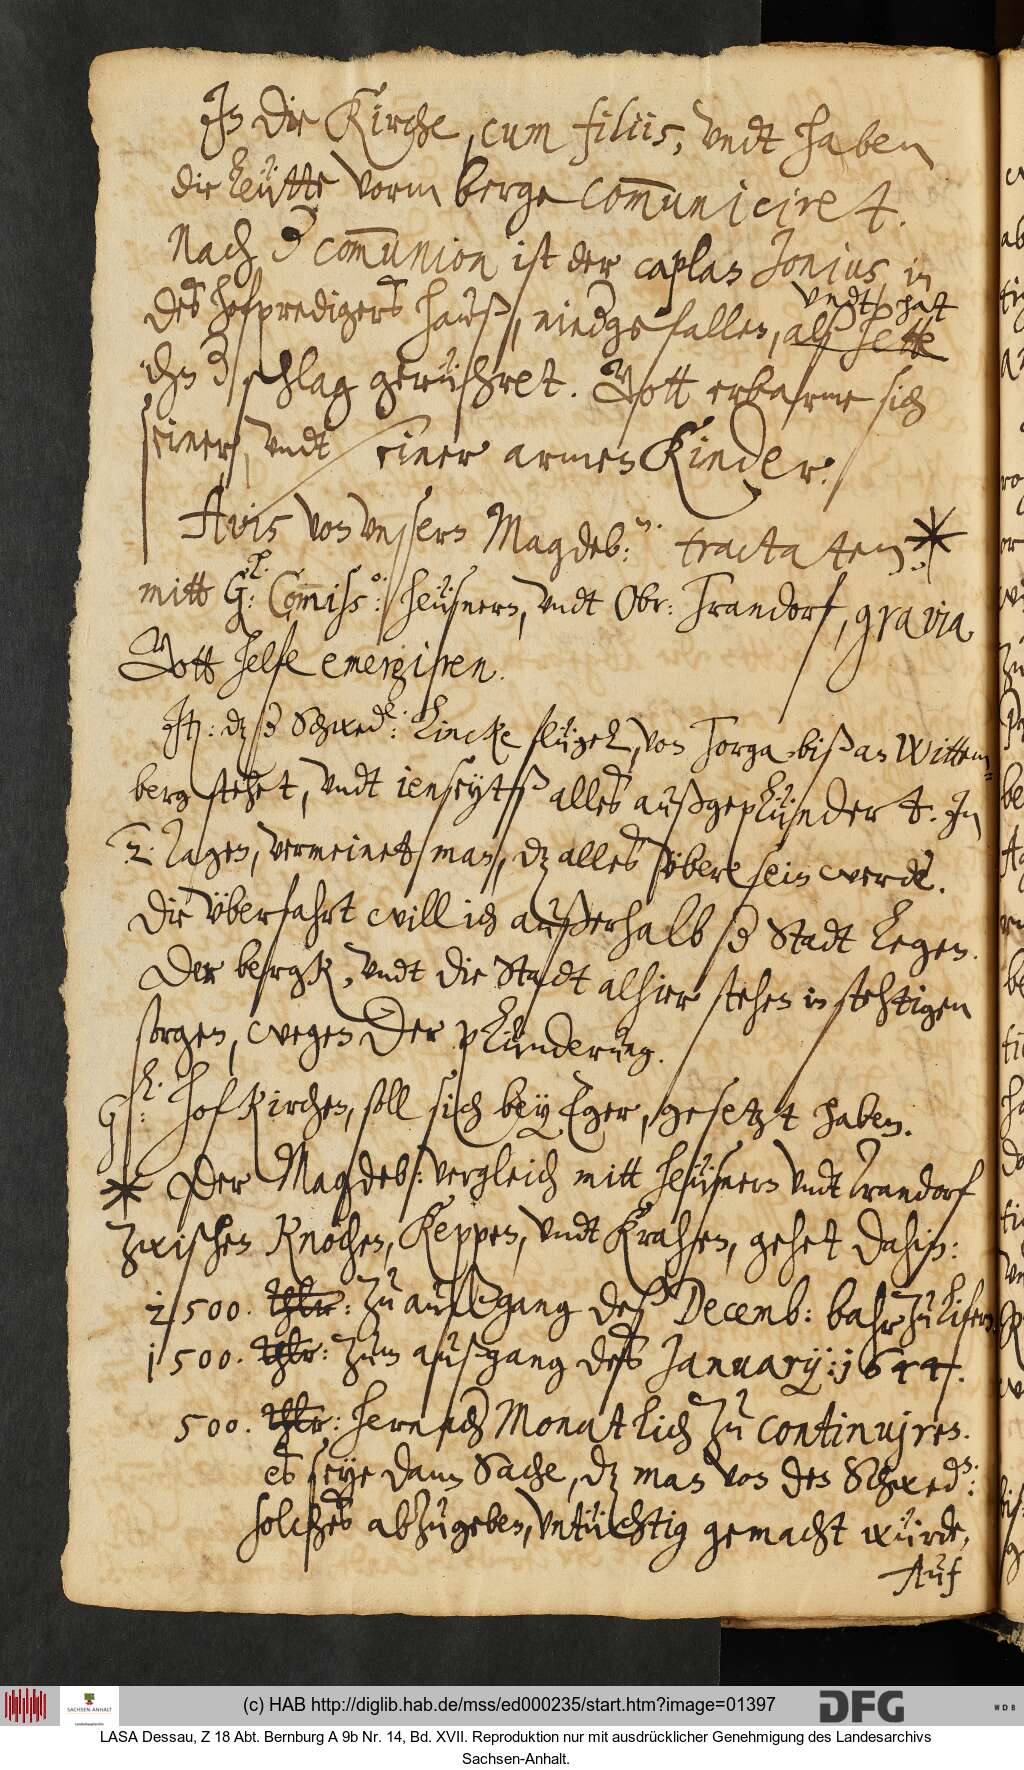 In die Kirche, cum filiis, undt haben
die leütte vorm berge com̅uniciret.
Nach d com̅union ist der caplan Jonius in
undt hat
des hofpredigers hauß, niedgefallen, alß hette
ihn d schlag gerühret. Gott erbarme sich
seiner, undt seiner armen Kinder.
Avis von unsern Magdeb: n. tractaten *
mitt G: l. Com̅iss: o. Heüsnern, undt Obr: Trandorf, gravia
Gott helfe emergiren.
It: dz d Schwed: l. lincke flügel, von Torga biß an Wittem=
berg stehet, undt ienseytß alles außgeplündert. In
2. Tagen, vermeinet man, dz alles übere sein werde.
Die überfahrt will ich außerhalb d Stadt legen.
Der bergk, undt die Stadt alhier stehen in stehtigen
sorgen, wegen der plünderung.
G: l. Hofkirchen, soll sich bey Eger, gesetzt haben.
* Der Magdeb: vergleich mitt Heüsnern undt Trandorf
zwischen Knochen, Keppen, undt Krahsen, gehet dahin:
2500. Thlr: zu außgang deß Decemb: bahr zu lifern
1500. Thlr: zum außgang des January: 1644.
500. Thlr: hernach Monatlich zu continuiren.
es seye dann Sache, dz man von den Schwed: n.
solches abzugeben, untüchtig gemacht würde,
Auf
(c) HAB http://diglib.hab.de/mss/ed000235/start.htm?image=01397
DFG
WDB
SACHSEN-ANHALT
LASA Dessau, Z 18 Abt. Bernburg A 9b Nr. 14, Bd. XVII. Reproduktion nur mit ausdrücklicher Genehmigung des Landesarchivs
Sachsen-Anhalt.